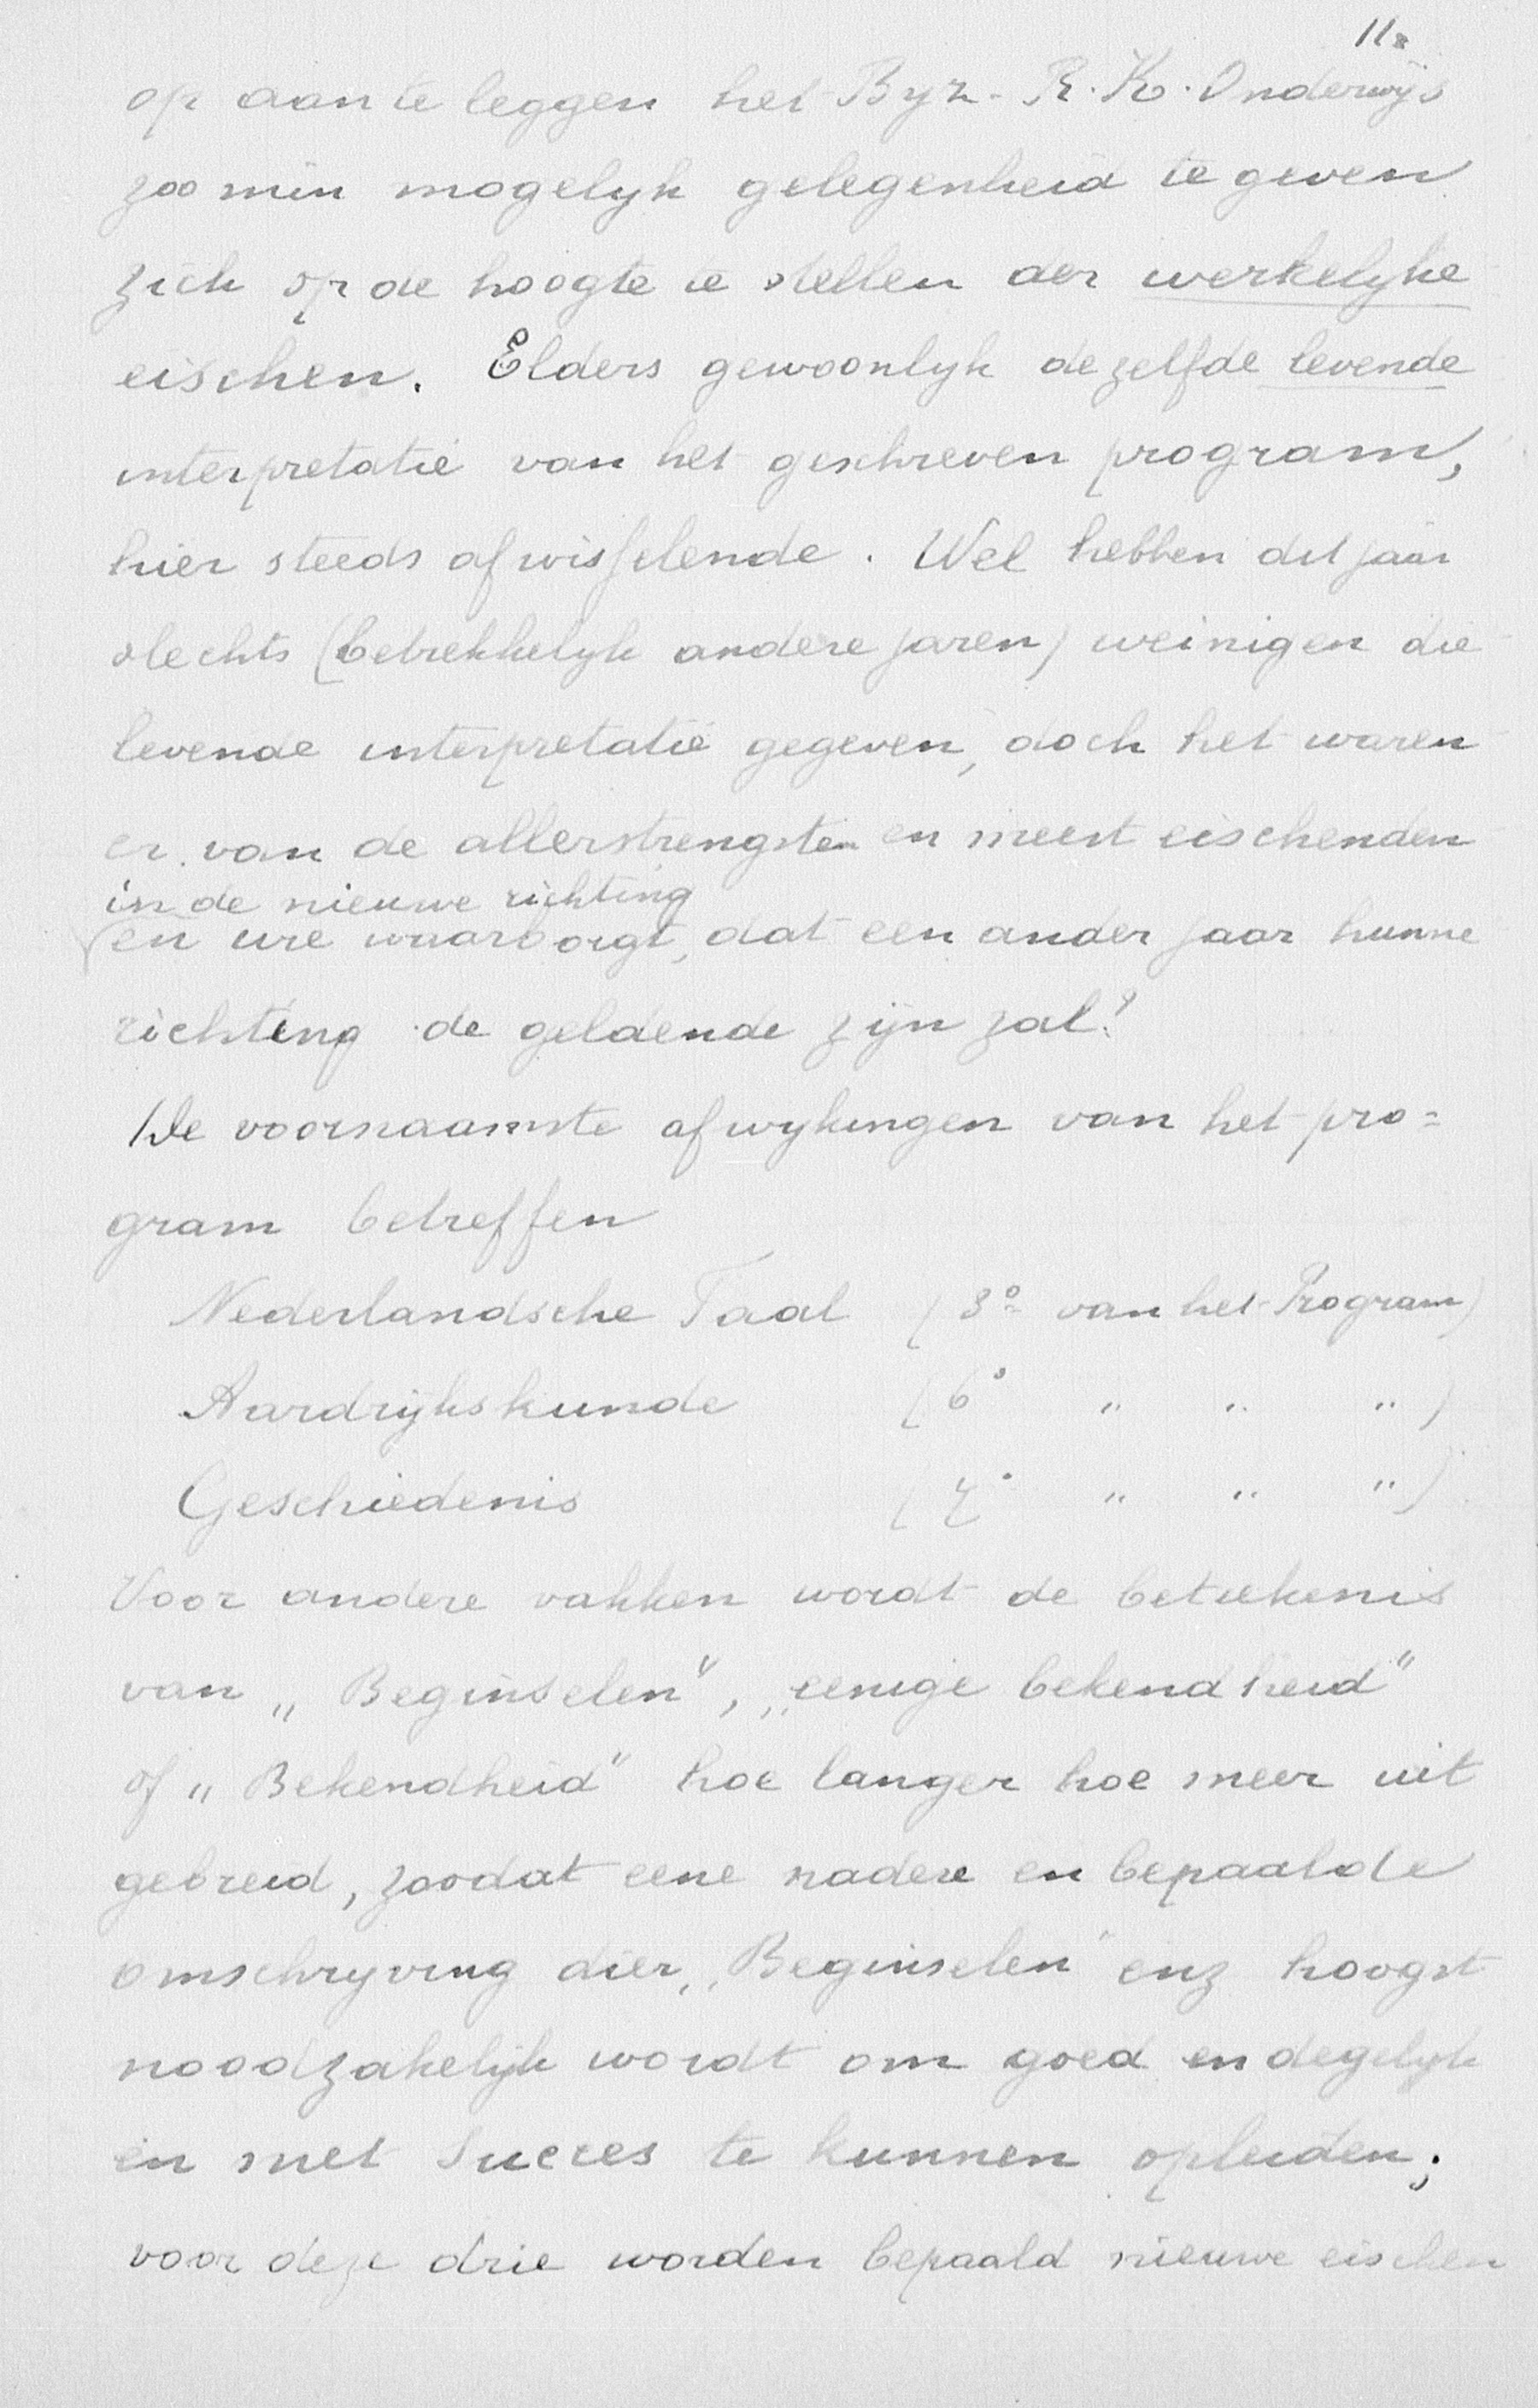 11x
op aan te leggen het Byz. R. K. Onderwijs
zoo min mogelyk gelegenheid te geven
zich op de hoogte te stellen der werkelyke
eischen. Elders gewoonlyk dezelfde levende
interpretatie van het geschreven program,
hier steeds afwisselende. Wel hebben dit jaar
slechts (betrekkelyk andere jaren) weinigen die
levende interpretatie gegeven, doch het waren
er van de allerstrengsten en meest eischenden
in de nieuwe richting
en wie waarborgt, dat een ander jaar hunne
richting de geldende zijn zal?
De voornaamste afwykingen van het pro=
gram betreffen
Nederlandsche Taal (3° van het Program)
Aardrijkskunde (6° " " ")
Geschiedenis (7° " " ")
Voor andere vakken wordt de beteekenis
van „Beginselen", „eenige bekendheid"
of „Bekendheid" hoe langer hoe meer uit
gebreid, zoodat eene nadere en bepaalde
omschryving dier „Beginselen" enz hoogst
noodzakelijk wordt om goed en degelyk
en met succes te kunnen opleiden;
voor deze drie worden bepaald nieuwe eischen